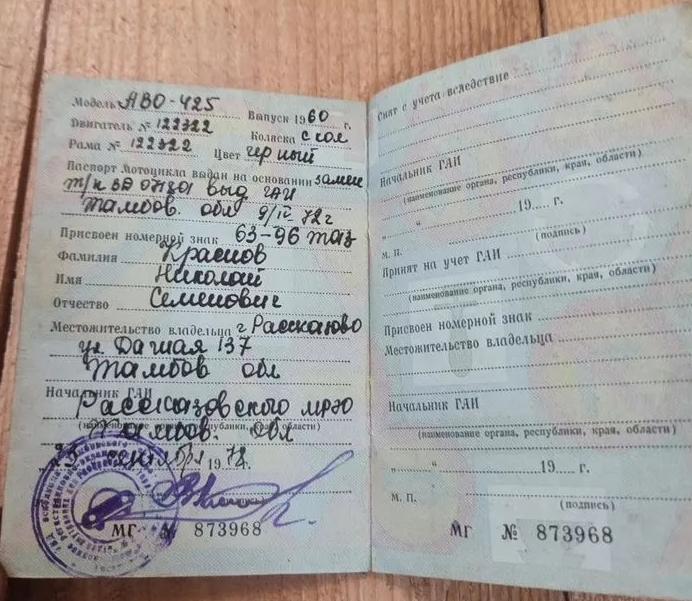 Модель АВО-425 Выпуск 1960 г.
Двигатель № 122322 Коляска с кол
Рама № 122322 Цвет черный
Паспорт мотоцикла выдан на основании замен
т/п выд ГАИ
Тамбов. обл 9/IV-72г
Присвоен номерной знак 63-96 таз
Фамилия Краснов
Имя Николай
Отчество Семенович
Местожительство владельца г Рассказово
ул 137
Тамбов обл
Начальник ГАИ
Рассказовского мрэо
(наименование органа, республики, края, области)
Тамбов. обл
сентября 1972г.
МГ № 873968
Снят с учета вследствие
Начальник ГАИ
(наименование органа, республики, края, области)
„ “ 19 г.
м. п. (подпись)
Принят на учет ГАИ
(наименование органа, республики, края, области)
Присвоен номерной знак
Местожительство владельца
Начальник ГАИ
(наименование органа, республики, края, области)
„ “ 19 г.
м. п. (подпись)
МГ № 873968